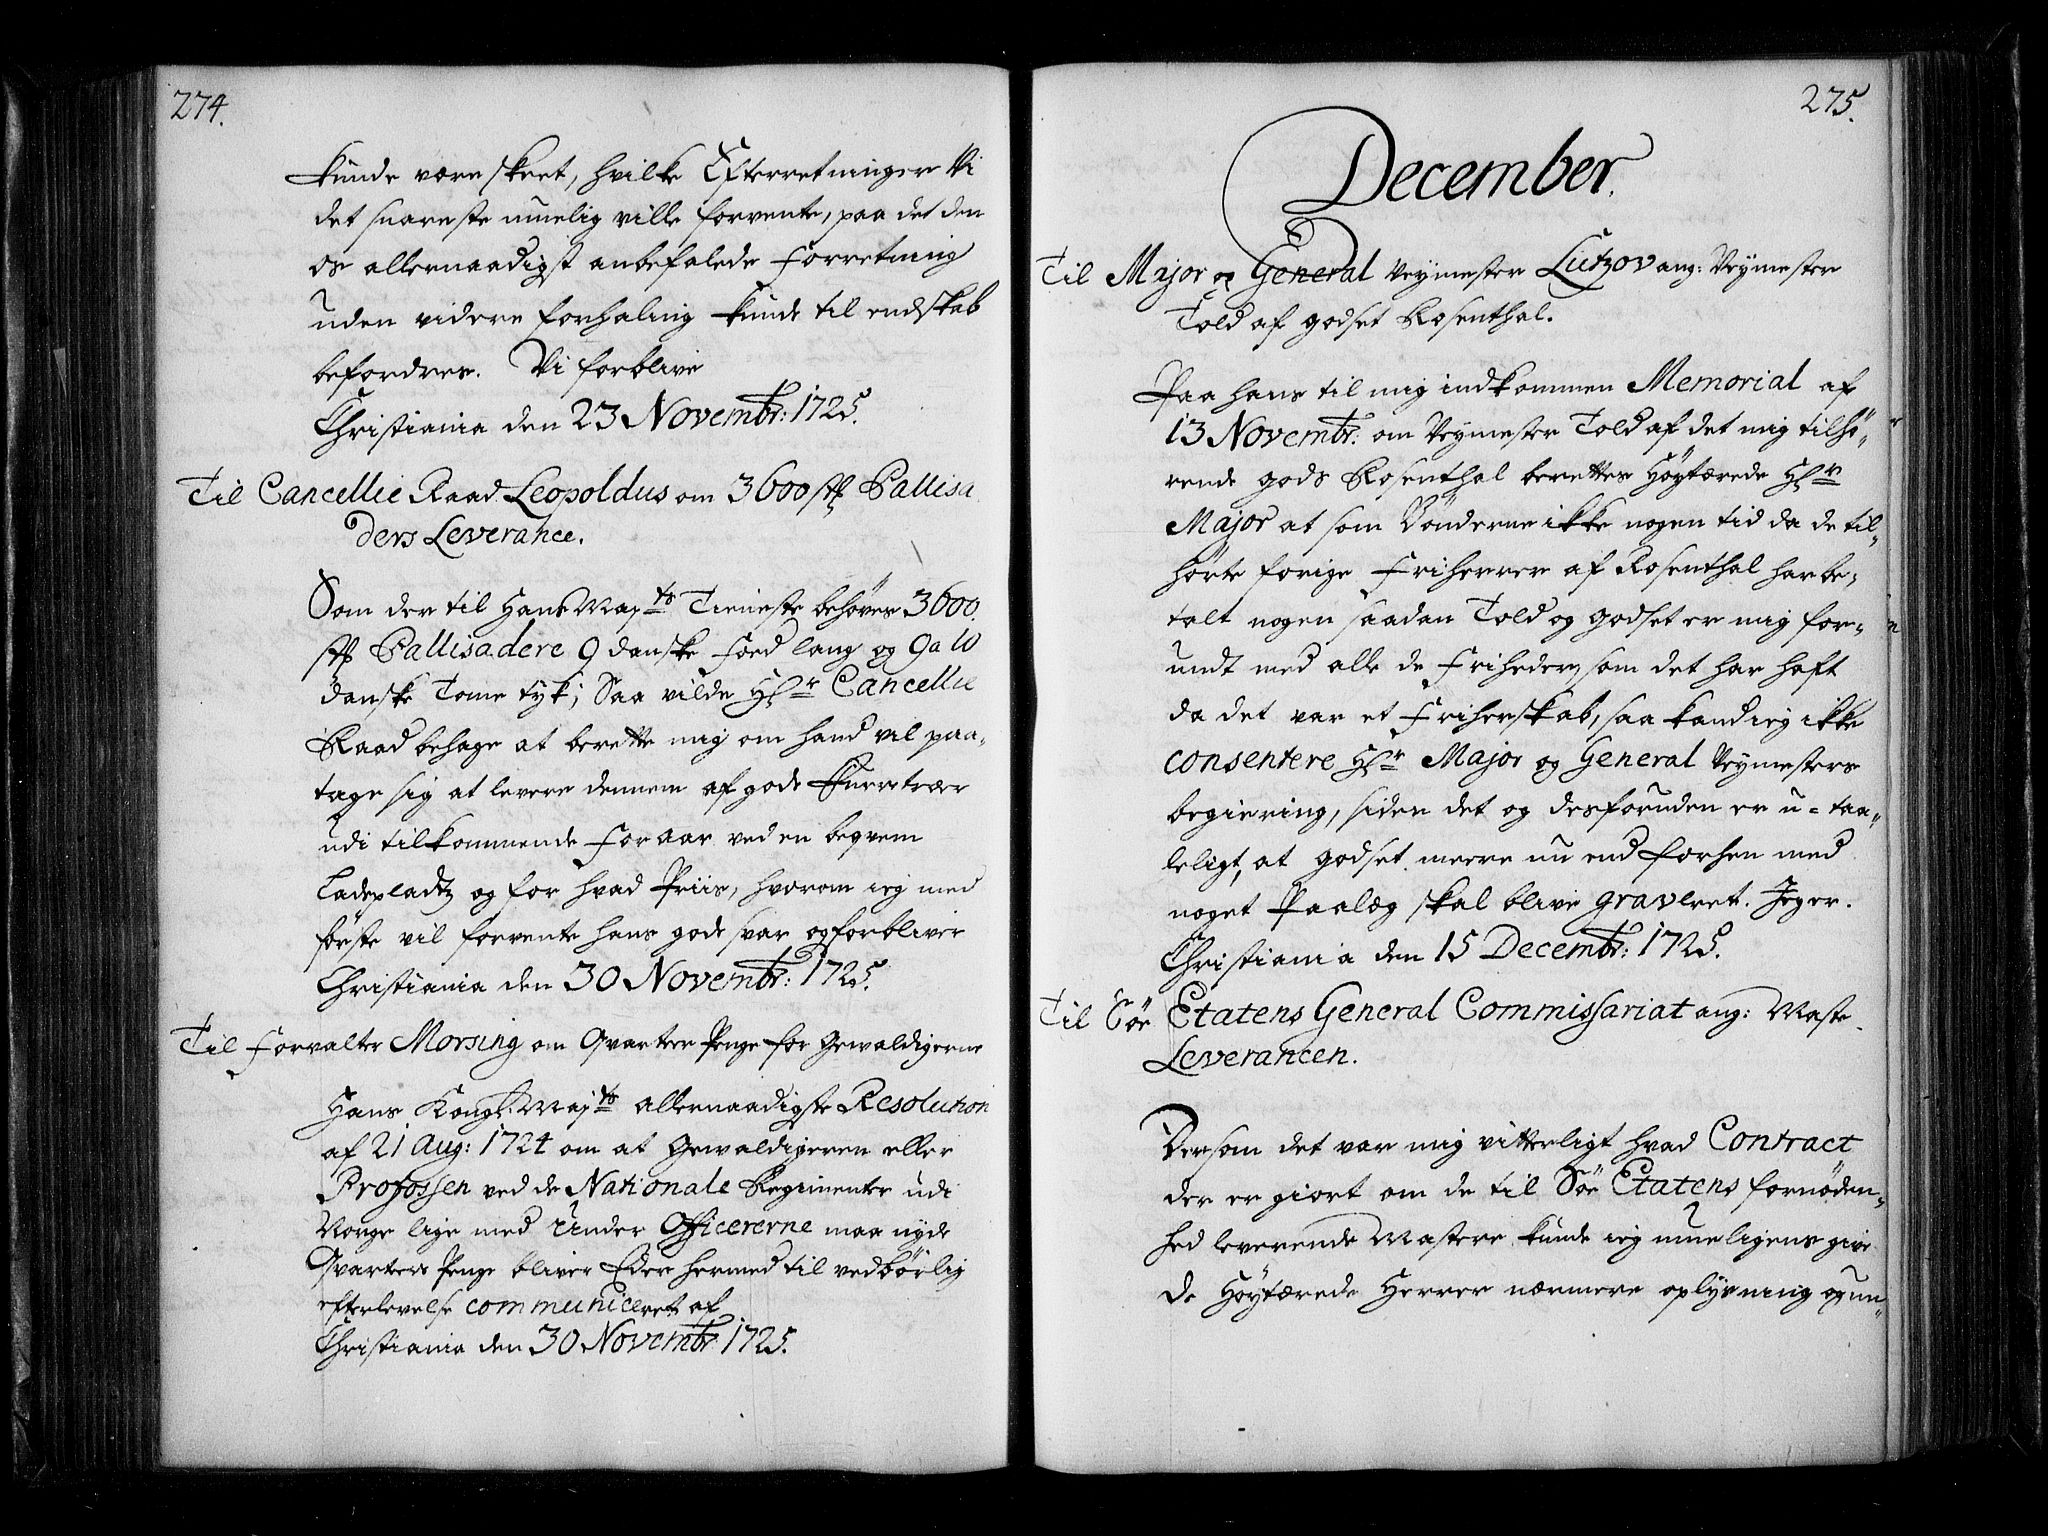 274.
kunde være skeet, hvilke Efterretninger Vi
det snareste muelig ville forvente, paa det den
os allernaadigst anbefalede Forretning
uden videre forhaling kunde til endskab
befordres. Vi forblive
Christiania den 23 Novembr: 1725.
Til Cancellie Raad Leopoldus om 3600 stk Pallisa
ders Leverance.
Som der til Hans Majts Tieneste behöves 3600
stk Pallisadere 9 danske Foed lang og 9 a 10
danske Tome tyk; Saa vilde Hr Cancellie
Raad behage at berette mig om hand vil paa-
tage sig at levere dennem af gode Furretræer
udi tilkommende Foraar ved en beqvem
Ladepladtz og for hvad Priis, hvorom ieg med
förste vil forvente hans gode svar og forbliver
Christiania den 30 Novembr: 1725.
Til Forvalter Morsing om Qvarteer Penge for Gewaldigerne
Hans Kongl: Majts allernaadigste Resolution
af 21 Aug: 1724 om at Gewaldigeren eller
Profossen ved de Nationale Regimenter udi
Norge lige med Under Officererne maa nyde
Qvarteers Penge bliver Eder hermed til vedbörlig
efterlevelse communiceret af
Christiania den 30 Novembr 1725.
275.
December.
Til Major og General Veymester Lützov ang: Veymester
Told af godset Rosenthal.
Paa hans til mig indkommen Memorial af
13 Novembr: om Veymester Told af det mig tilhö-
rende gods Rosenthal berettes Höytærede Hr
Major at som Bönderne ikke nogen tid da de til-
hörte forige Friherrer af Rosenthal har be-
talt nogen saadan Told og godset er mig for-
undt med alle de Friheder, som det har haft
da det var et Friherskab, saa kand ieg ikke
consentere Hr Major og General Veymesters
begiering, siden det og desforuden er u-taa-
leligt, at godset meere nu end forhen med
noget Paalæg skal blive graveret. Jeg er.
Christiania den 15 Decembr: 1725.
Til Söe Etatens General Commissariat ang: Maste
Leverancen.
Dersom det var mig vitterligt hvad Contract
der er giort om de til Söe Etatens fornöden-
hed leverende Mastere kunde ieg mueligens give
de Höytærede Herrer nærmere oplysning og un-